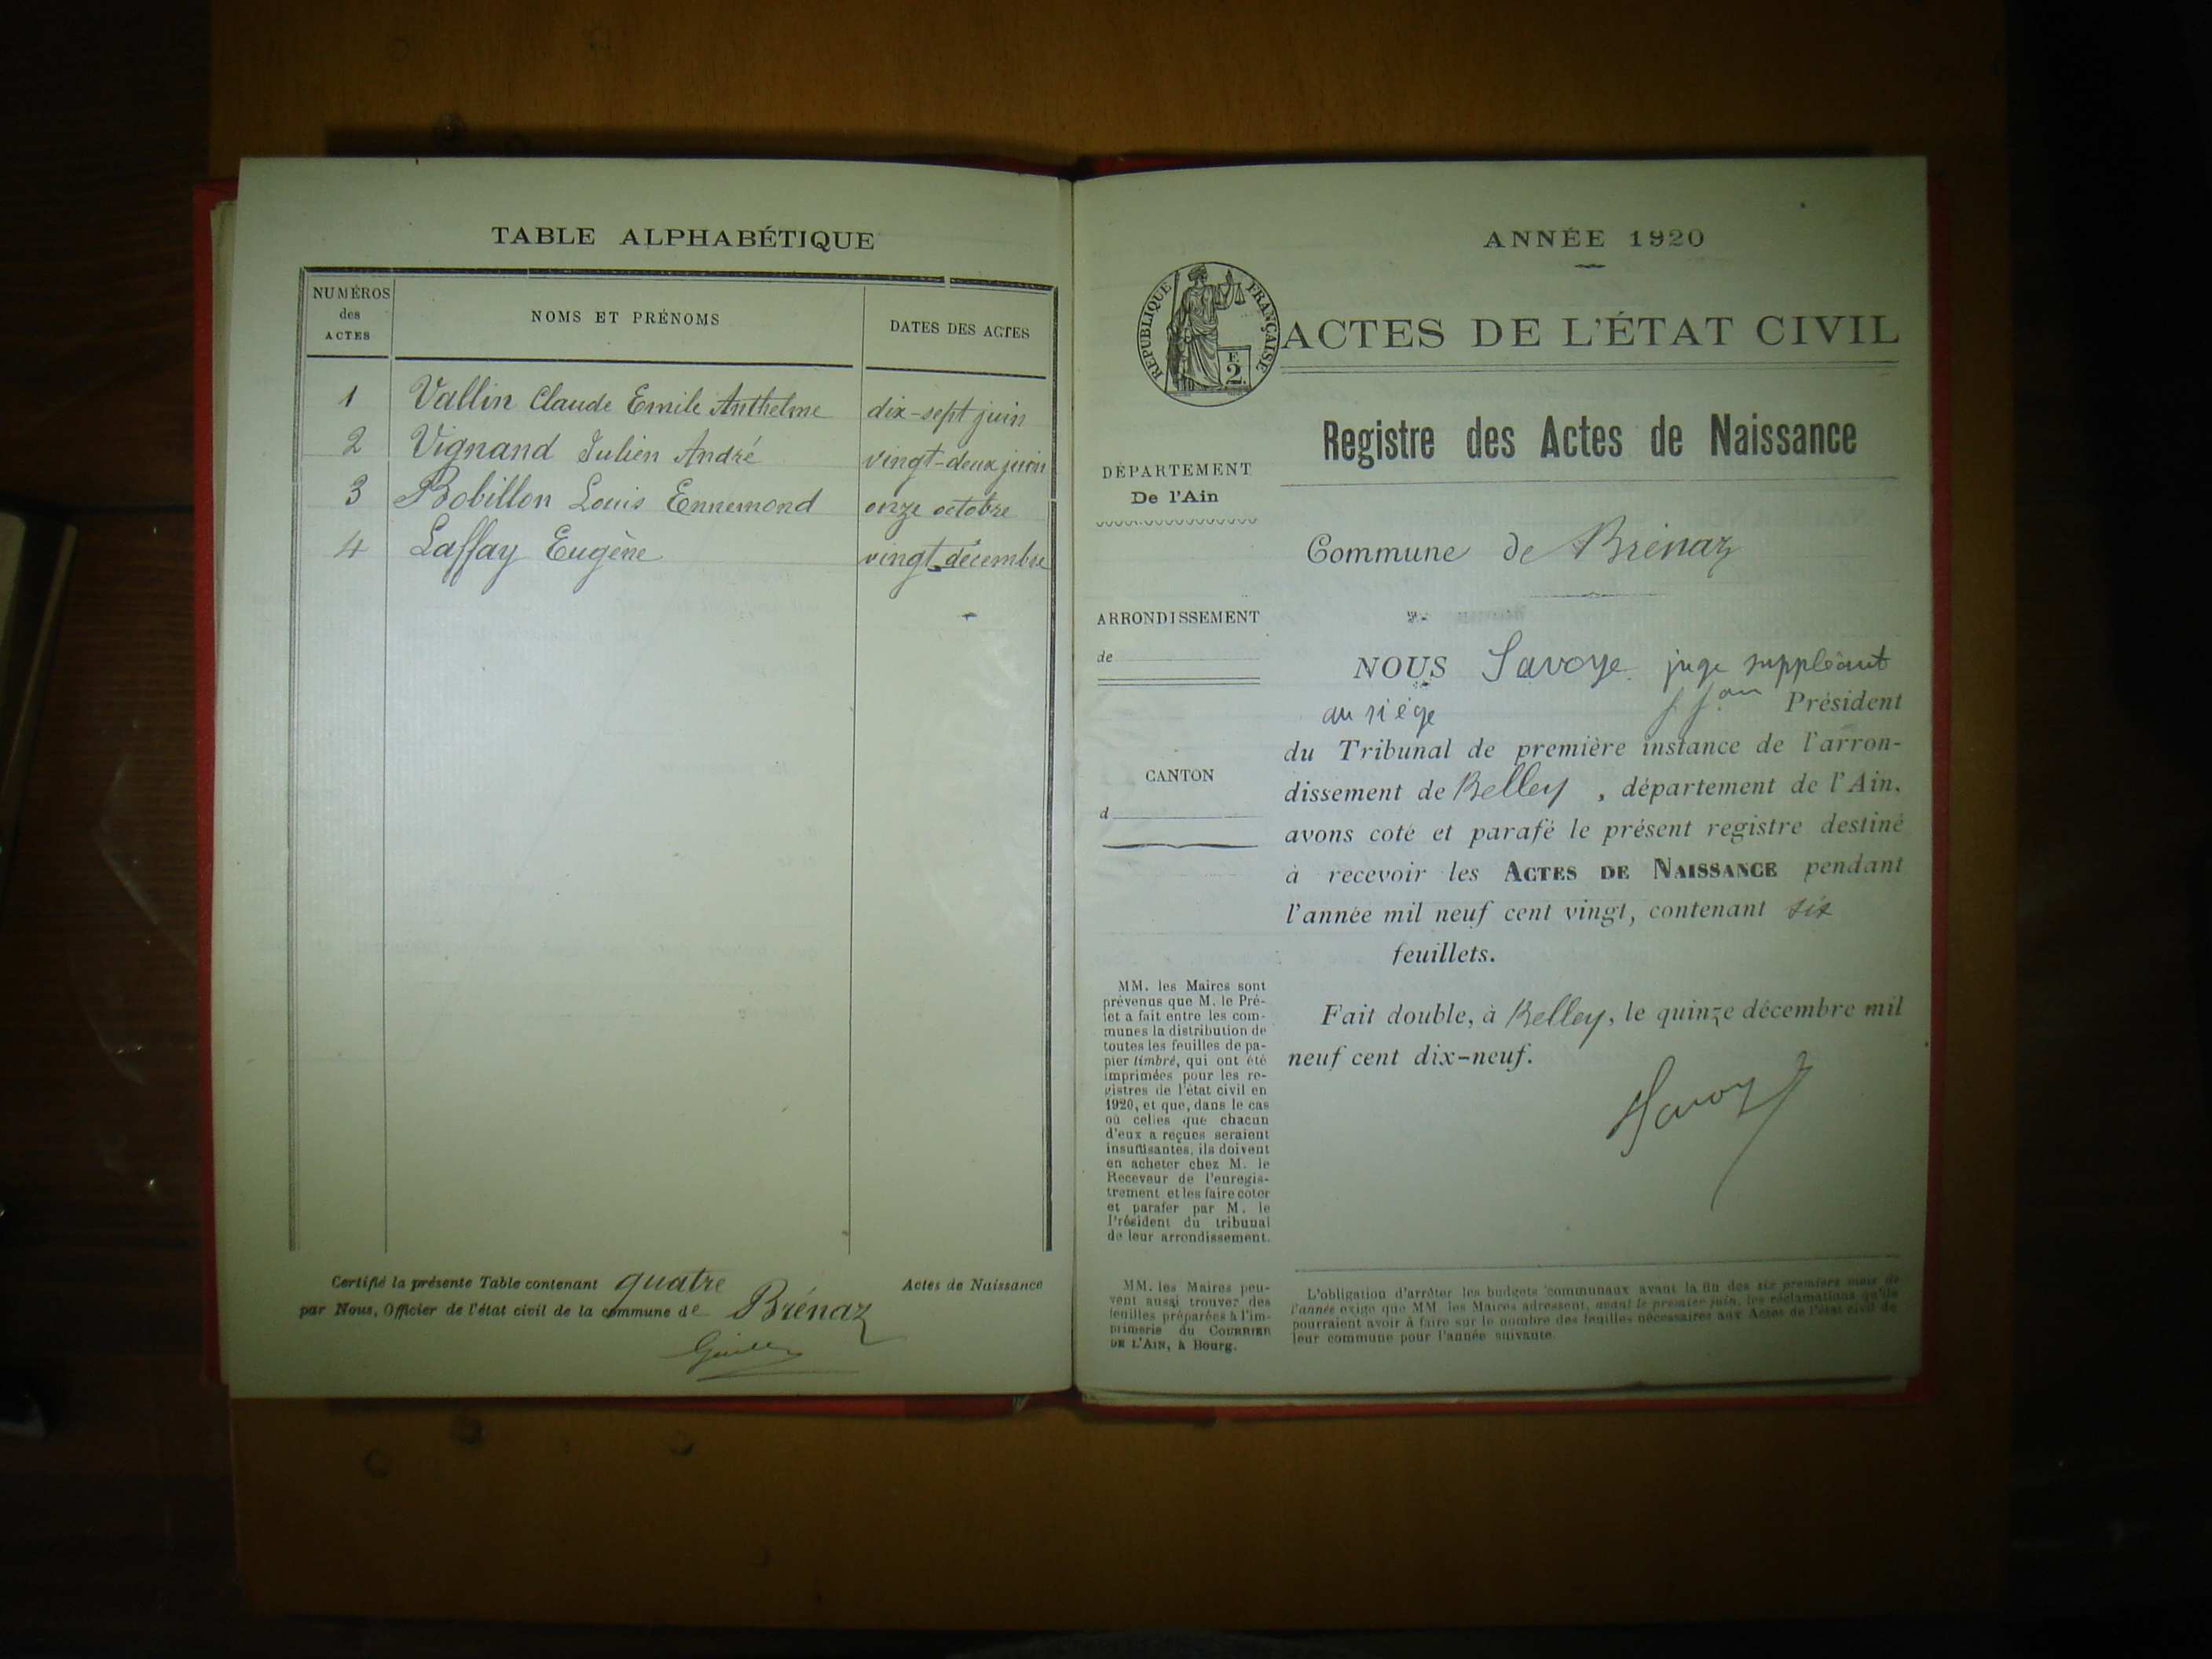 TABLE ALPHABÉTIQUE
NUMÉROS
des
ACTES
NOMS ET PRÉNOMS
DATES DES ACTES
1 Vallin Claude Emile Anthelme dix-sept juin
2 Vignand Julien André vingt-deux juin
3 Bobillon Louis Ennemond onze octobre
4 Laffay Eugène vingt décembre
Certifié la présente Table contenant quatre Actes de Naissance
par Nous, Officier de l'état civil de la commune de Brénaz
ANNÉE 1920
RÉPUBLIQUE FRANÇAISE
F.
2.
ACTES DE L'ÉTAT CIVIL
Registre des Actes de Naissance
DÉPARTEMENT
De l'Ain
Commune de Brénaz
ARRONDISSEMENT
de
CANTON
d
NOUS Savoye juge suppléant
au siège Président
du Tribunal de première instance de l'arron-
dissement de Belley, département de l'Ain,
avons coté et parafé le présent registre destiné
à recevoir les ACTES DE NAISSANCE pendant
l'année mil neuf cent vingt, contenant six
feuillets.
Fait double, à Belley, le quinze décembre mil
neuf cent dix-neuf.
Savoye
MM. les Maires sont
prévenus que M. le Pré-
fet a fait entre les com-
munes la distribution de
toutes les feuilles de pa-
pier timbré, qui ont été
imprimées pour les re-
gistres de l'état civil en
1920, et que, dans le cas
où celles que chacun
d'eux a reçues seraient
insuffisantes, ils doivent
en acheter chez M. le
Receveur de l'enregis-
trement et les faire coter
et parafer par M. le
Président du tribunal
de leur arrondissement.
MM. les Maires peu-
vent aussi trouver des
feuilles préparées à l'im-
primerie du COURRIER
DE L'AIN, à Bourg.
L'obligation d'arrêter les budgets communaux avant la fin des six premiers mois de
l'année exige que MM. les Maires adressent, avant le premier juin, les réclamations qu'ils
pourraient avoir à faire sur le nombre des feuilles nécessaires aux Actes de l'état civil de
leur commune pour l'année suivante.